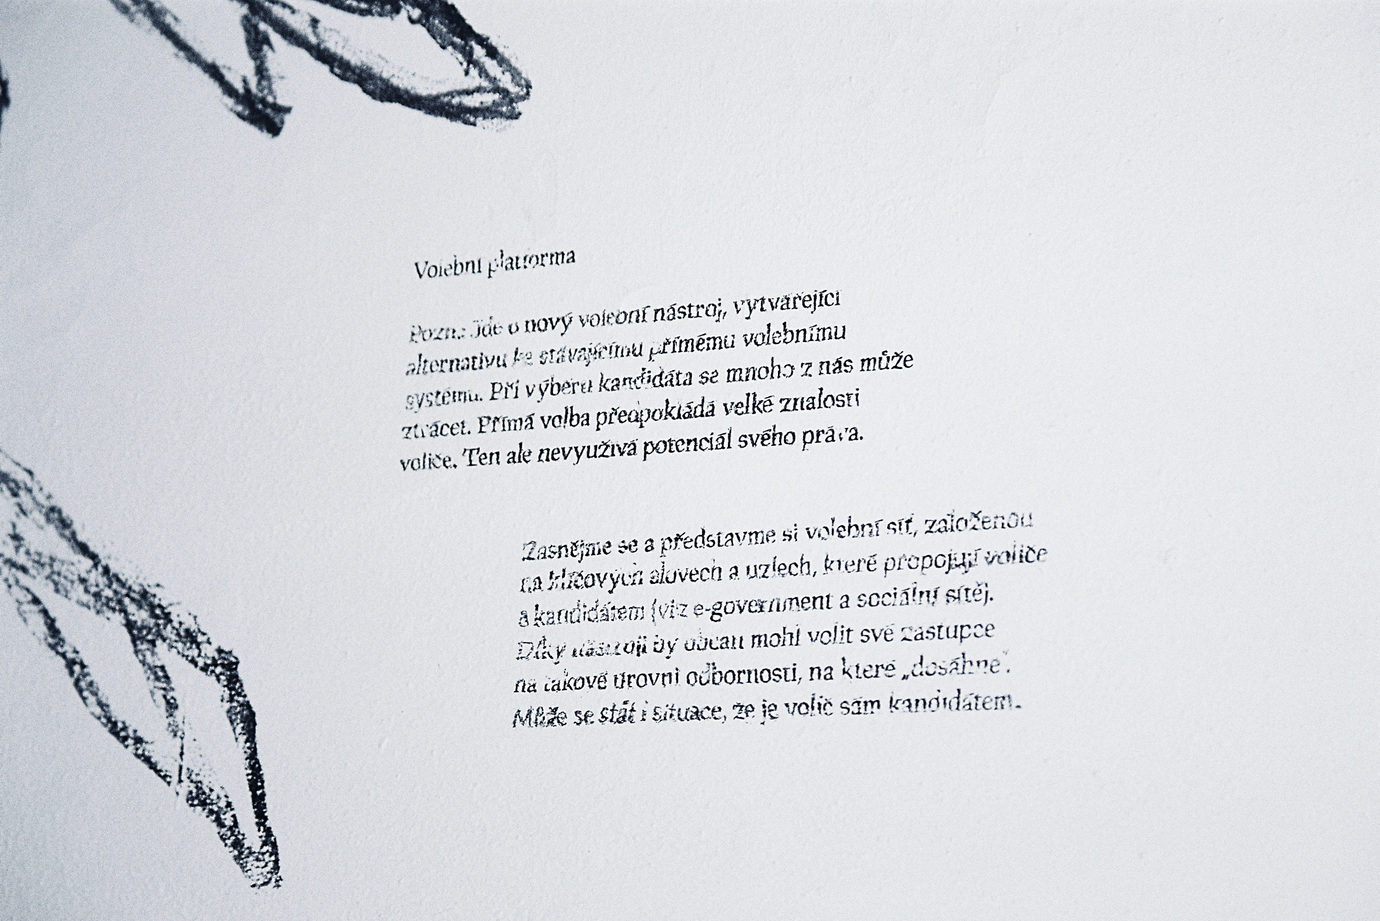 Volební platforma
Pozn.: Jde o nový volební nástroj, vytvářející
alternativu ke stávajícímu přímému volebnímu
systému. Při výběru kandidáta se mnoho z nás může
ztrácet. Přímá volba předpokládá velké znalosti
voliče. Ten ale nevyužívá potenciál svého práva.
Zasnějme se a představme si volební síť, založenou
na klíčových slovech a uzlech, které propojují voliče
a kandidátem (viz e-government a sociální sítě).
Díky nástroji by občan mohl volit své zástupce
na takové úrovni odbornosti, na které „dosáhne“.
Může se stát i situace, že je volič sám kandidátem.